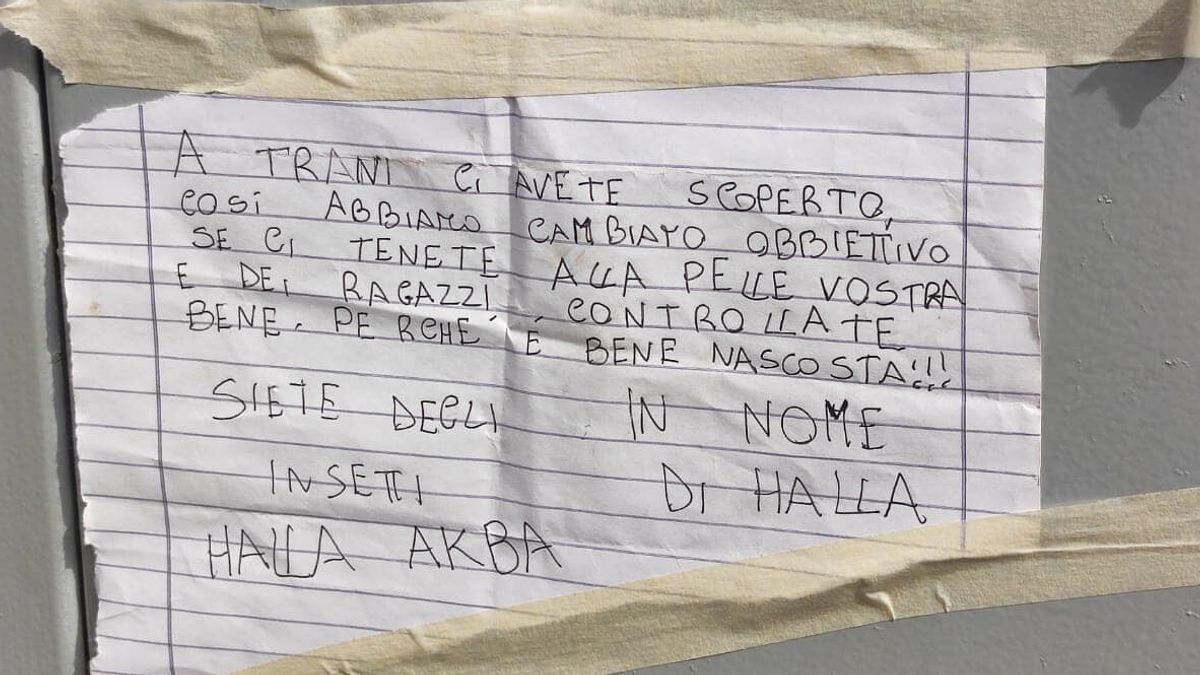 A TRANI CI AVETE SCOPERTO,
COSÍ ABBIAMO CAMBIATO OBBIETTIVO
SE CI TENETE ALLA PELLE VOSTRA
E DEI RAGAZZI CONTROLLATE
BENE. PERCHÉ É BENE NASCOSTA!!!
SIETE DEGLI
INSETTI
HALLA AKBA
IN NOME
DI HALLA